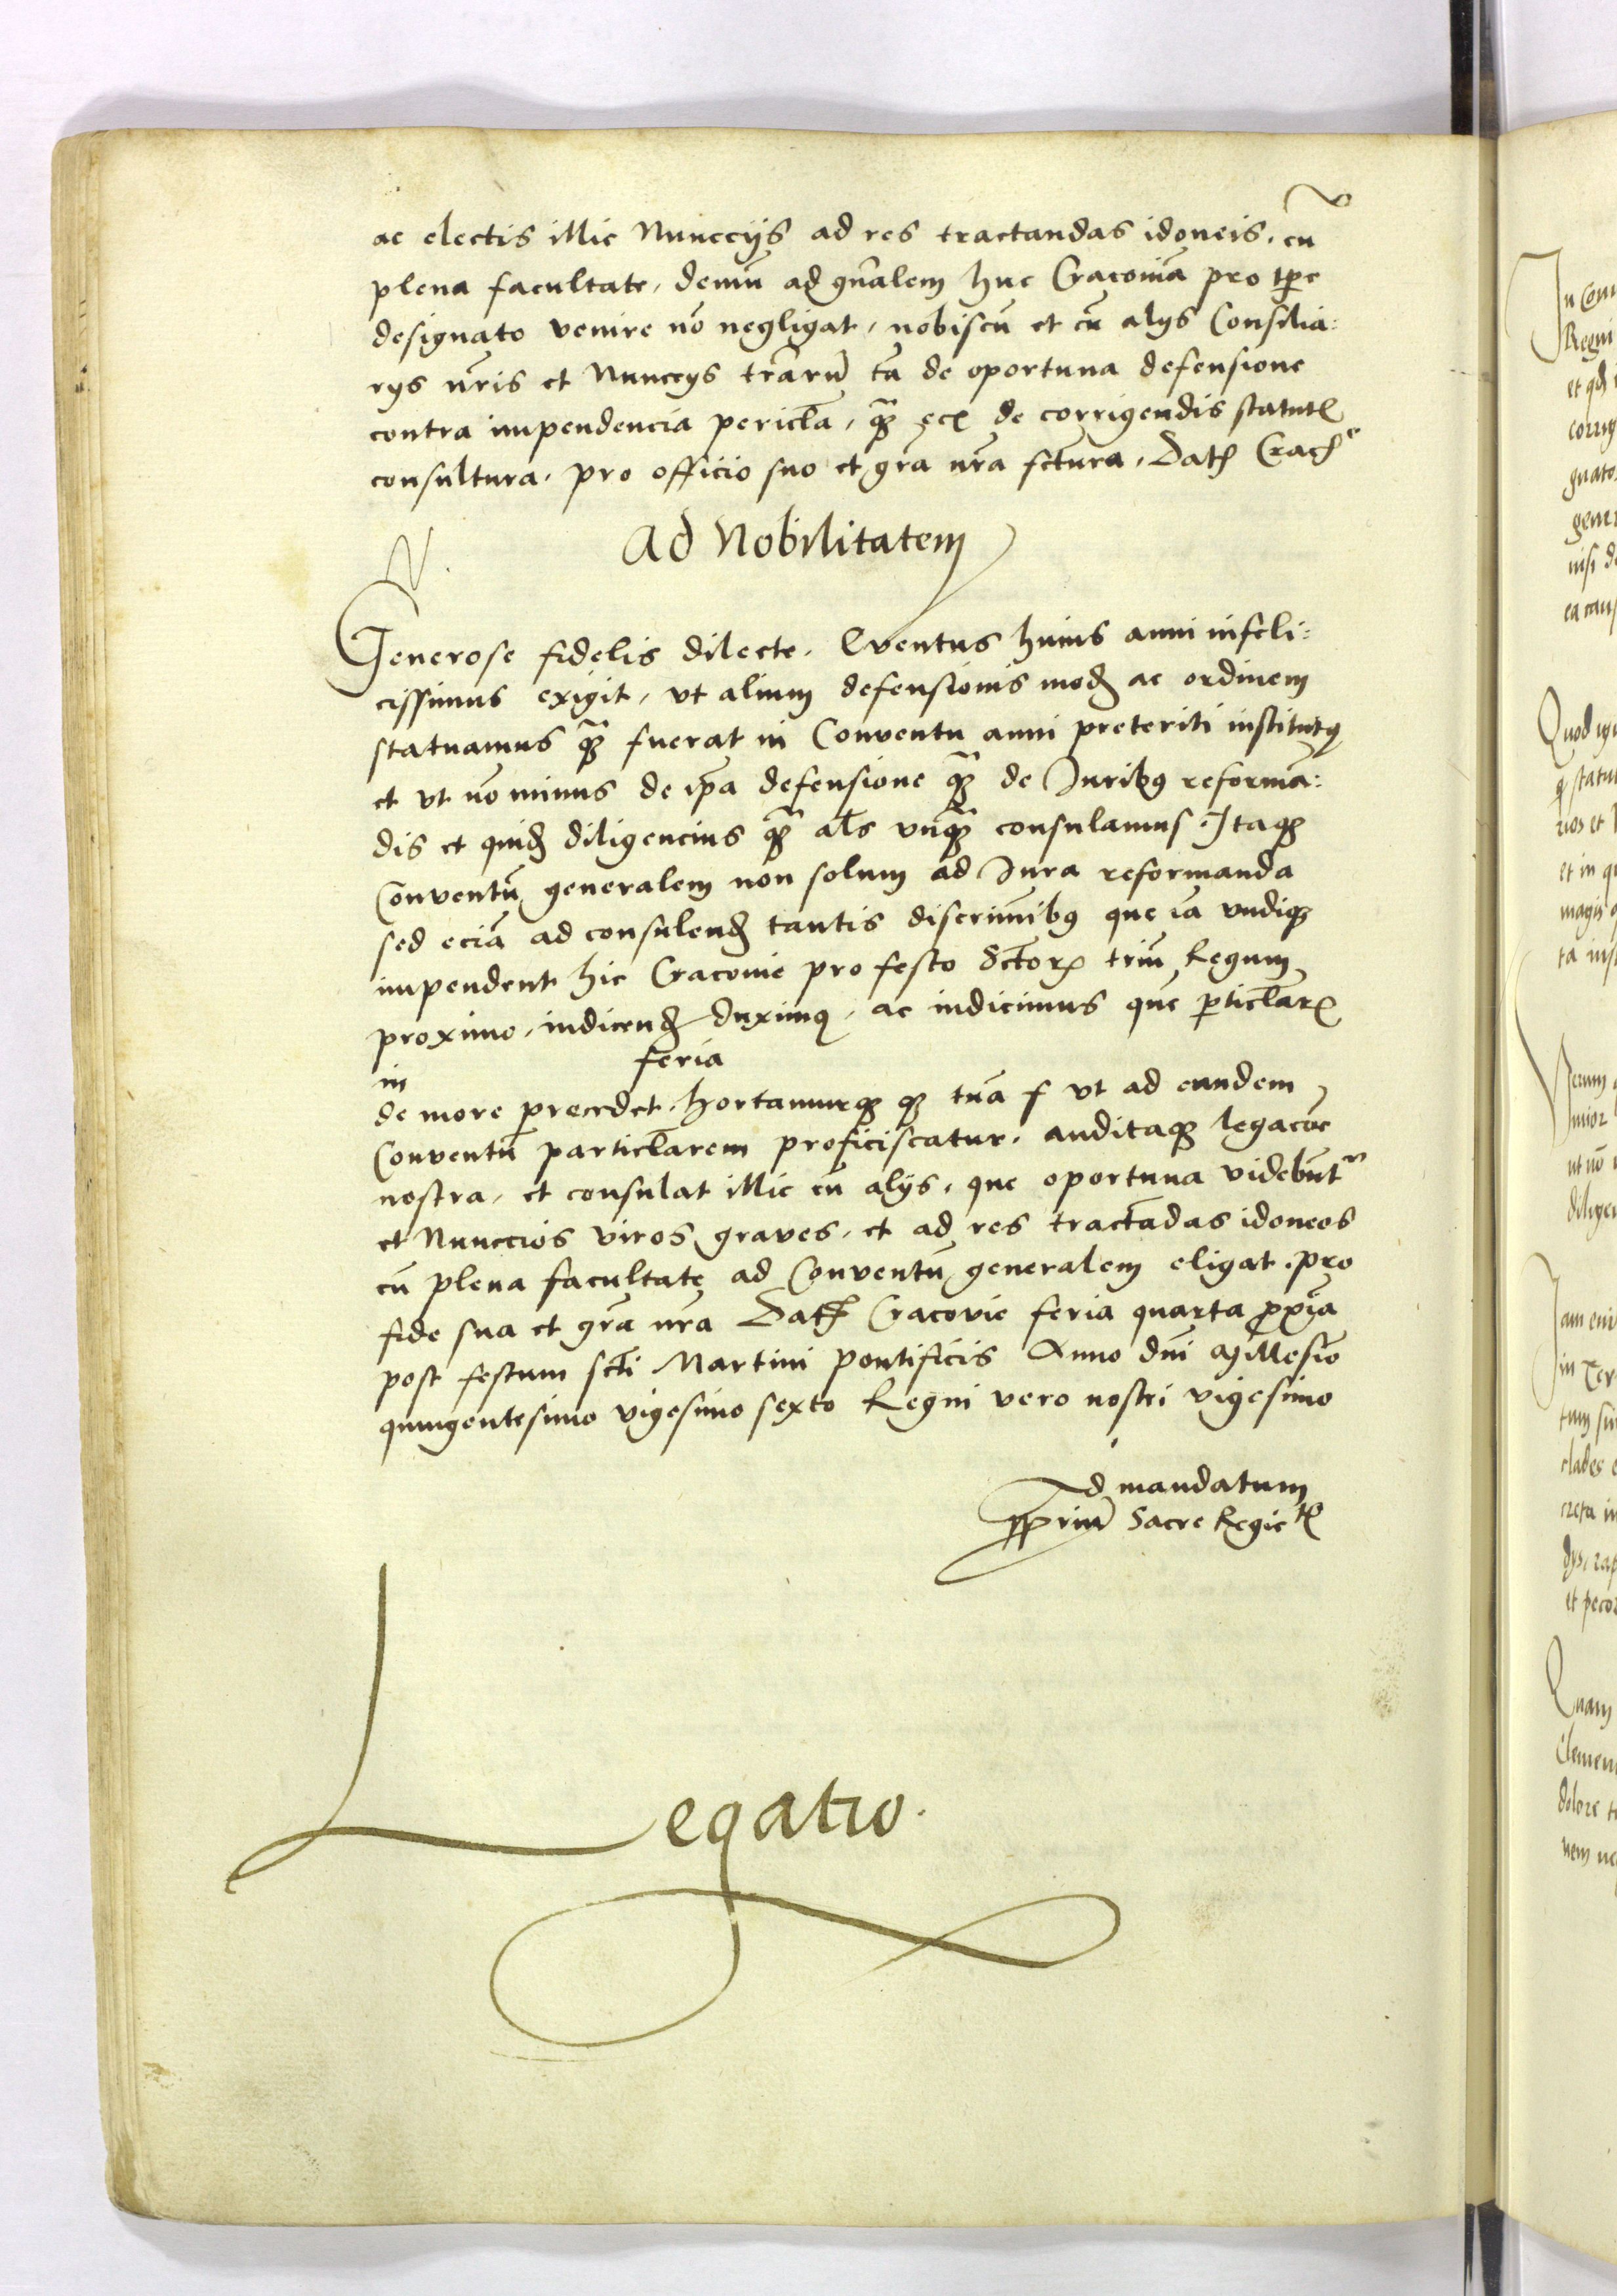 ac electis illic Nuncciis ad res tractandas idoneis, cū
plena facultate, demū ad gn̄alem huc Cracoviā pro tp̄re
designato venire nō negligat, nobiscū et cū alijs Consilia:
rijs nr̄is et Nunccijs trr̄arū tā de oportuna defensione
contra impendencia pericl̄a, quā ecꝫ de corrigendis statutꝭ
consultura, pro officio suo et gr̄a nr̄a fctura, Datꝭ Cracꝭ
Ad Nobilitatem
N.
Generose fidelis dilecte. Eventus huius anni infeli:
cissimus exigit, vt alium defensionis modū ac ordinem
statuamus qꝫ̄ fuerat in Conventu anni preteriti institutꝰ
et vt nō minus de ip̄a defensione qꝫ̄ de Iuribꝰ reformā:
dis et quidꝫ diligencius qꝫ̄ al̄s vnqꝫ̄ consulamus. Itaqꝫ
Conventū generalem non solum ad Iura reformanda
sed eciā ad consulendꝭ tantis discriminibꝰ que iā vndiqꝫ
impendent hic Cracovie pro festo Sctorꝝ triū Regum
proximo, indicendꝭ duximꝰ, ac indicimus que ꝑticl̄arꝭ
in feria
de more precedet. Hortamurqꝫ qꝫ tua f vt ad eundem
Conventū particl̄arem proficiscatur, auditaqꝫ legacōe
nostra, et consulat illic cū alijs, que oportuna videbūtr
et Nunccios viros graves, et ad res tractādas idoneos
cū plena facultate ad Conventū generalem eligat. pro
fide sua et gr̄a nr̄a Datꝭ Cracovie feria quarta ꝓxīa
post festum scti Martini pontificis Anno dn̄i Millesīo
quingentesimo vigesimo sexto Regni vero nostri vigesimo
Ad mandatum
ꝓpriū Sacre Regie tꝭ
Legatio.